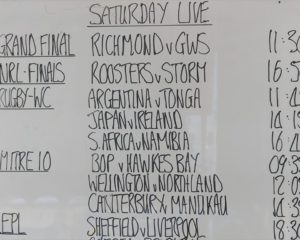 SATURDAY LIVE
GRAND FINAL RICHMOND V GWS
NRL-FINALS ROOSTERS V STORM
RUGBY-WC ARGENTINA V TONGA
JAPAN V IRELAND
S.AFRICA V NAMIBIA
MITRE 10 BOP V HAWKES BAY 09:3
WELLINGTON V NORTHLAND
CANTERBURY V MANUKAU
EPL SHEFFIELD V LIVERPOOL